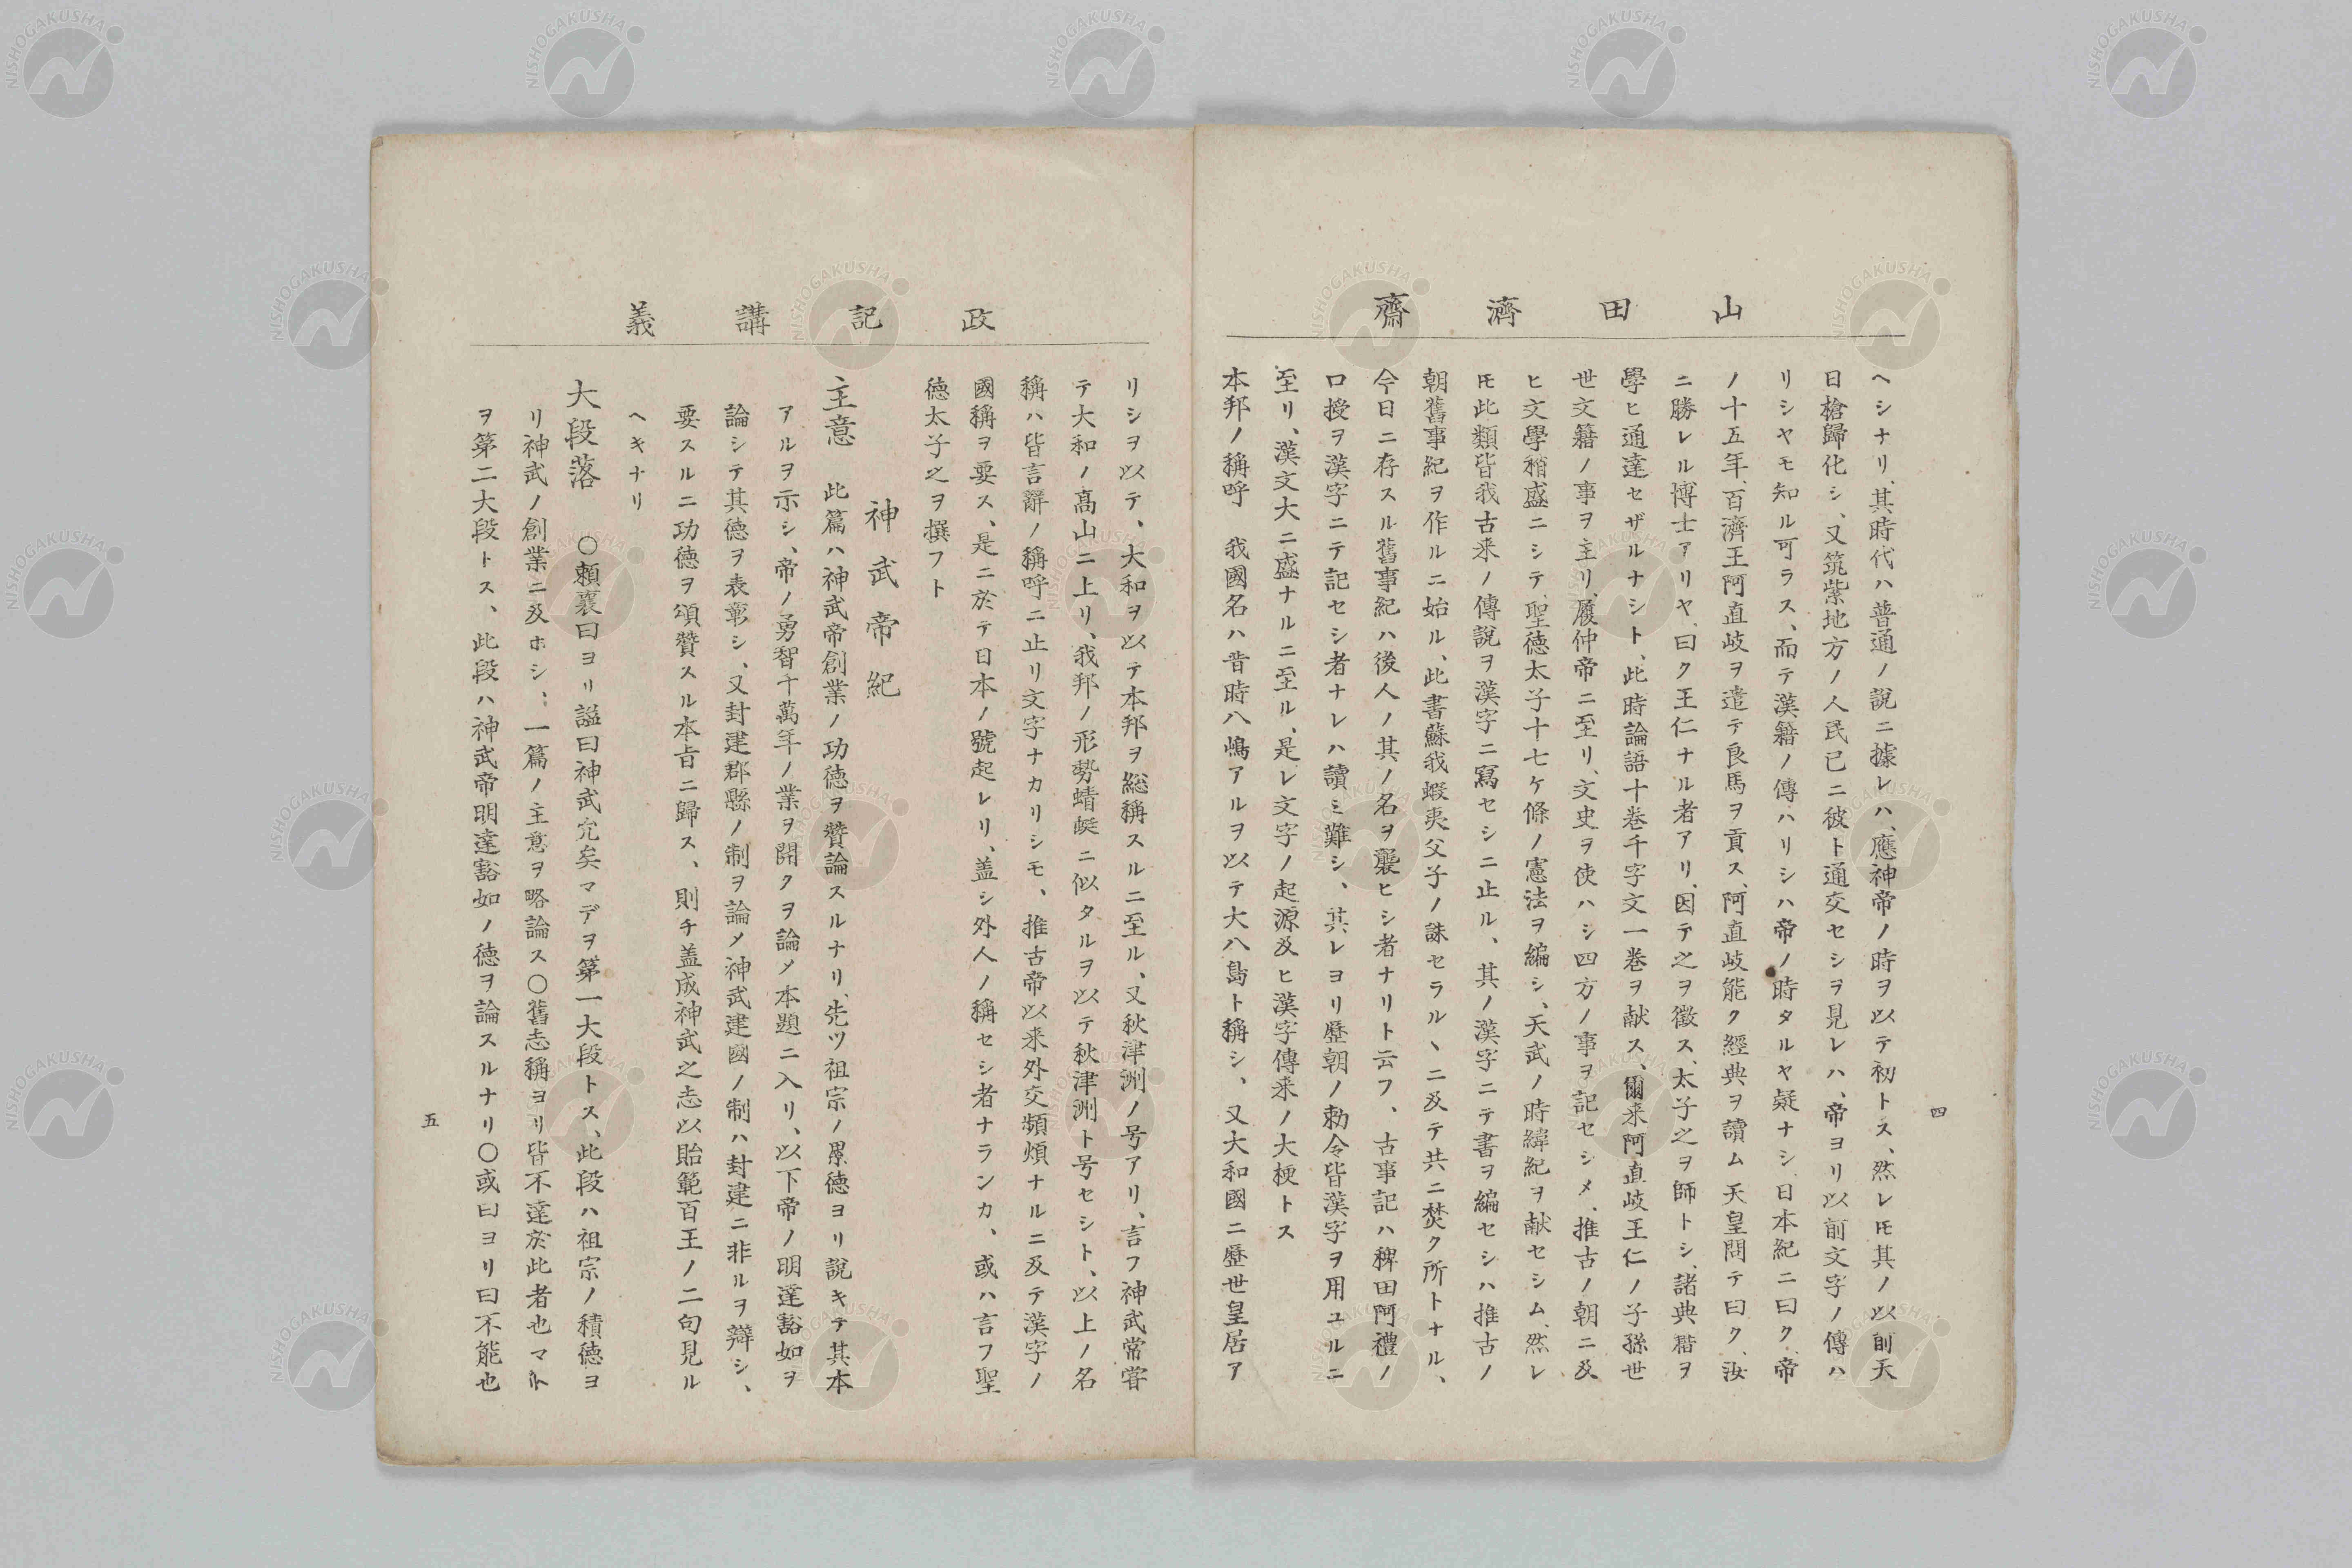 山田濟齋
ヘシナリ、其時代ハ普通ノ說ニ據レハ、應神帝ノ時ヲ以テ初トス、然レ𪜈其ノ以前天
日槍歸化シ、又筑紫地方ノ人民已ニ彼ト通交セシヲ見レハ、帝ヨリ以前文字ノ傳ハ
リシヤモ知ル可ラス、而テ漢籍ノ傳ハリシハ帝ノ時タルヤ疑ナシ、日本紀ニ曰ク、帝
ノ十五年、百濟王阿直岐ヲ遣テ良馬ヲ貢ス、阿直岐能ク經典ヲ讀ム天皇問テ曰ク、汝
ニ勝レル博士アリヤ、曰ク王仁ナル者アリ、因テ之ヲ徵ス、太子之ヲ師トシ、諸典籍ヲ
學ヒ通達セザルナシト、此時論語十卷千字文一卷ヲ献ス、爾来阿直岐王仁ノ子孫世
世文籍ノ事ヲ主リ、履仲帝ニ至リ、文史ヲ使ハシ四方ノ事ヲ記セシメ、推古ノ朝ニ及
ヒ文學稍盛ニシテ、聖德太子十七ケ條ノ憲法ヲ編シ、天武ノ時緯紀ヲ献セシム、然レ
𪜈此類皆我古来ノ傳說ヲ漢字ニ寫セシニ止ル、其ノ漢字ニテ書ヲ編セシハ推古ノ
朝舊事紀ヲ作ルニ始ル、此書蘇我蝦夷父子ノ誅セラルヽニ及テ共ニ焚ク所トナル、
今日ニ存スル舊事紀ハ後人ノ其ノ名ヲ襲ヒシ者ナリト云フ、古事記ハ稗田阿禮ノ
口授ヲ漢字ニテ記セシ者ナレハ讀ミ難シ、其レヨリ歷朝ノ勅令皆漢字ヲ用ユルニ
至リ、漢文大ニ盛ナルニ至ル、是レ文字ノ起源及ヒ漢字傳来ノ大梗トス
本邦ノ稱呼　我國名ハ昔時八嶋アルヲ以テ大八島ト稱シ、又大和國ニ歷世皇居ア
四
政記講義
リシヲ以テ、大和ヲ以テ本邦ヲ総稱スルニ至ル、又秋津洲ノ号アリ、言フ神武常甞
テ大和ノ高山ニ上リ、我邦ノ形勢蜻蜓ニ似タルヲ以テ秋津洲ト号セシト、以上ノ名
稱ハ皆言辭ノ稱呼ニ止リ文字ナカリシモ、推古帝以来外交頻煩ナルニ及テ漢字ノ
國稱ヲ要ス、是ニ於テ日本ノ號起レリ、盖シ外人ノ稱セシ者ナランカ、或ハ言フ聖
德太子之ヲ撰フト
神武帝紀
主意　此篇ハ神武帝創業ノ功德ヲ贊論スルナリ、先ツ祖宗ノ累德ヨリ說キテ其本
アルヲ示シ、帝ノ勇智千萬年ノ業ヲ開クヲ論メ本題ニ入リ、以下帝ノ明達豁如ヲ
論シテ其德ヲ表彰シ、又封建郡縣ノ制ヲ論メ神武建國ノ制ハ封建ニ非ルヲ辯シ、
要スルニ功德ヲ頌贊スル本旨ニ歸ス、則チ盖成神武之志以貽範百王ノ二句見ル
ヘキナリ
大段落　〇賴襄曰ヨリ謚曰神武允矣マデヲ第一大段トス、此段ハ祖宗ノ積德ヨ
リ神武ノ創業ニ及ホシ、一篇ノ主意ヲ略論ス〇舊志稱ヨリ皆不達於此者也マテ
ヲ第二大段トス、此段ハ神武帝明達豁如ノ德ヲ論スルナリ〇或曰ヨリ曰不能也
五